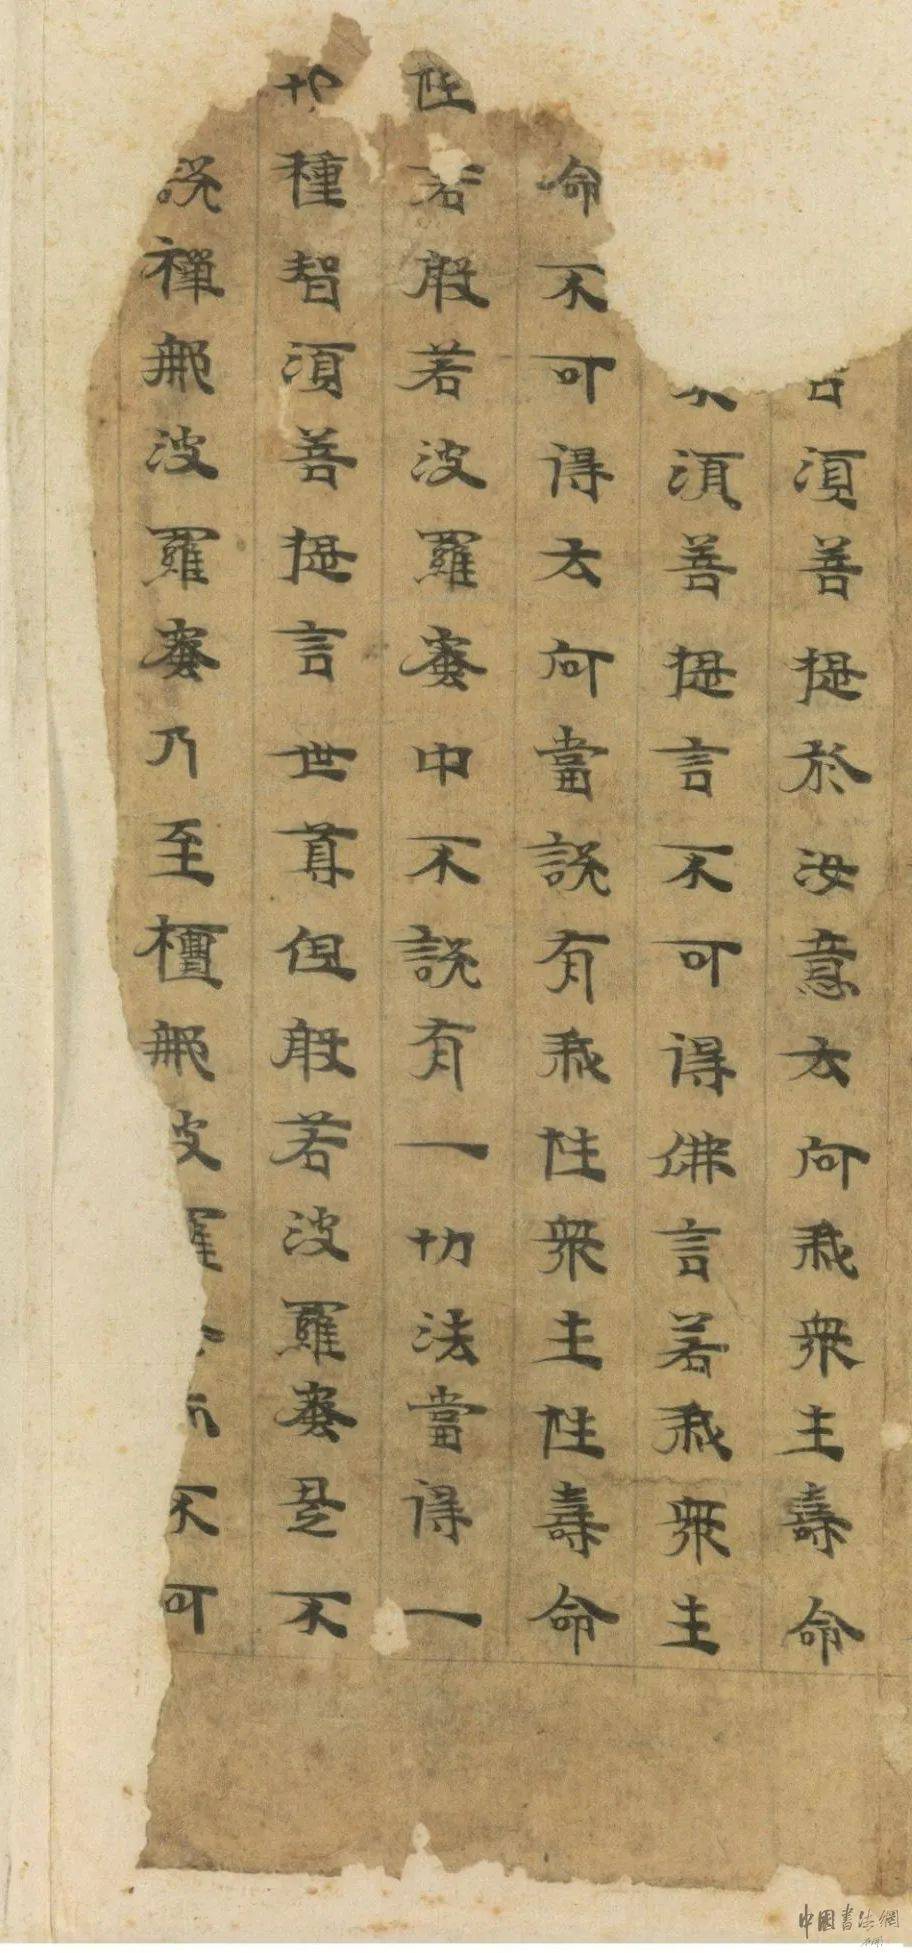 須善提於汝意云何我衆生壽命
須善提言不可得佛言若我衆生
命不可得云何當說有我性衆生性壽命
性若般若波羅蜜中不說有一切法當得一
切種智須菩提言世尊但般若波羅蜜是不
說禪那波羅蜜乃至檀那波羅不可
中國書法網